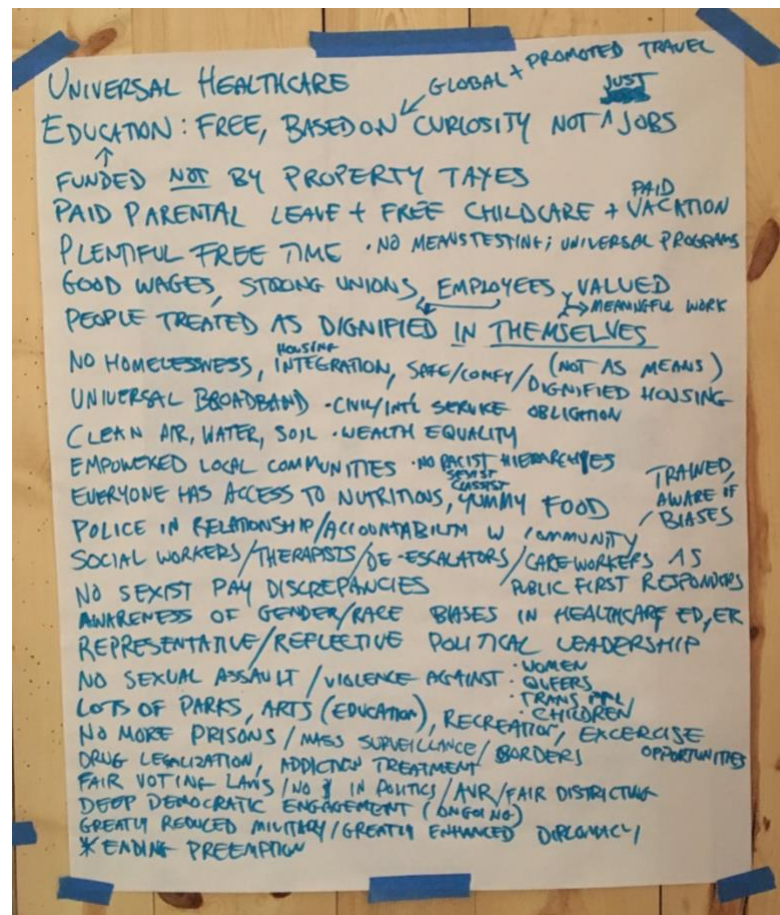 UNIVERSAL HEALTHCARE
GLOBAL + PROMOTED TRAVEL
JUST
EDUCATION: FREE, BASED ON CURIOSITY NOT ^ JOBS
FUNDED NOT BY PROPERTY TAXES
PAID
PAID PARENTAL LEAVE + FREE CHILDCARE + VACATION
PLENTIFUL FREE TIME · NO MEANS TESTING; UNIVERSAL PROGRAMS
GOOD WAGES, STRONG UNIONS, EMPLOYEES VALUED
→ MEANINGFUL WORK
PEOPLE TREATED AS DIGNIFIED IN THEMSELVES
(NOT AS MEANS)
HOUSING
NO HOMELESSNESS, INTEGRATION, SAFE/COMFY/DIGNIFIED HOUSING
UNIVERSAL BROADBAND · CIVIL/INT'L SERVICE OBLIGATION
CLEAN AIR, WATER, SOIL · WEALTH EQUALITY
EMPOWERED LOCAL COMMUNITIES · NO RACIST HIERARCHIES
SEXIST
CLASSIST
EVERYONE HAS ACCESS TO NUTRITIOUS, YUMMY FOOD
TRAINED,
AWARE OF
BIASES
POLICE IN RELATIONSHIP/ACCOUNTABILITY W COMMUNITY
SOCIAL WORKERS/THERAPISTS/DE-ESCALATORS/CAREWORKERS AS
PUBLIC FIRST RESPONDERS
NO SEXIST PAY DISCREPANCIES
AWARENESS OF GENDER/RACE BIASES IN HEALTHCARE, ED, ER
REPRESENTATIVE/REFLECTIVE POLITICAL LEADERSHIP
NO SEXUAL ASSAULT/VIOLENCE AGAINST: · WOMEN
· QUEERS
· TRANS PPL
· CHILDREN
LOTS OF PARKS, ARTS (EDUCATION), RECREATION, EXCERCISE
OPPORTUNITIES
NO MORE PRISONS/MASS SURVEILLANCE/BORDERS
DRUG LEGALIZATION, ADDICTION TREATMENT
FAIR VOTING LAWS/NO $ IN POLITICS/AVR/FAIR DISTRICTING
DEEP DEMOCRATIC ENGAGEMENT (ONGOING)
GREATLY REDUCED MILITARY/GREATLY ENHANCED DIPLOMACY
* ENDING PREEMPTION